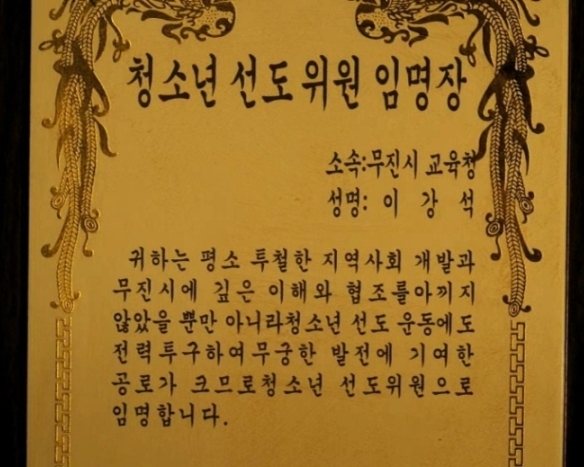 청소년 선도 위원 임명장
소속:무진시 교육청
성명: 이 강 석
귀하는 평소 투철한 지역사회 개발과
무진시에 깊은 이해와 협조를아끼지
않았을 뿐만 아니라청소년 선도 운동에도
전력투구하여무궁한 발전에 기여한
공로가 크므로청소년 선도위원으로
임명합니다.